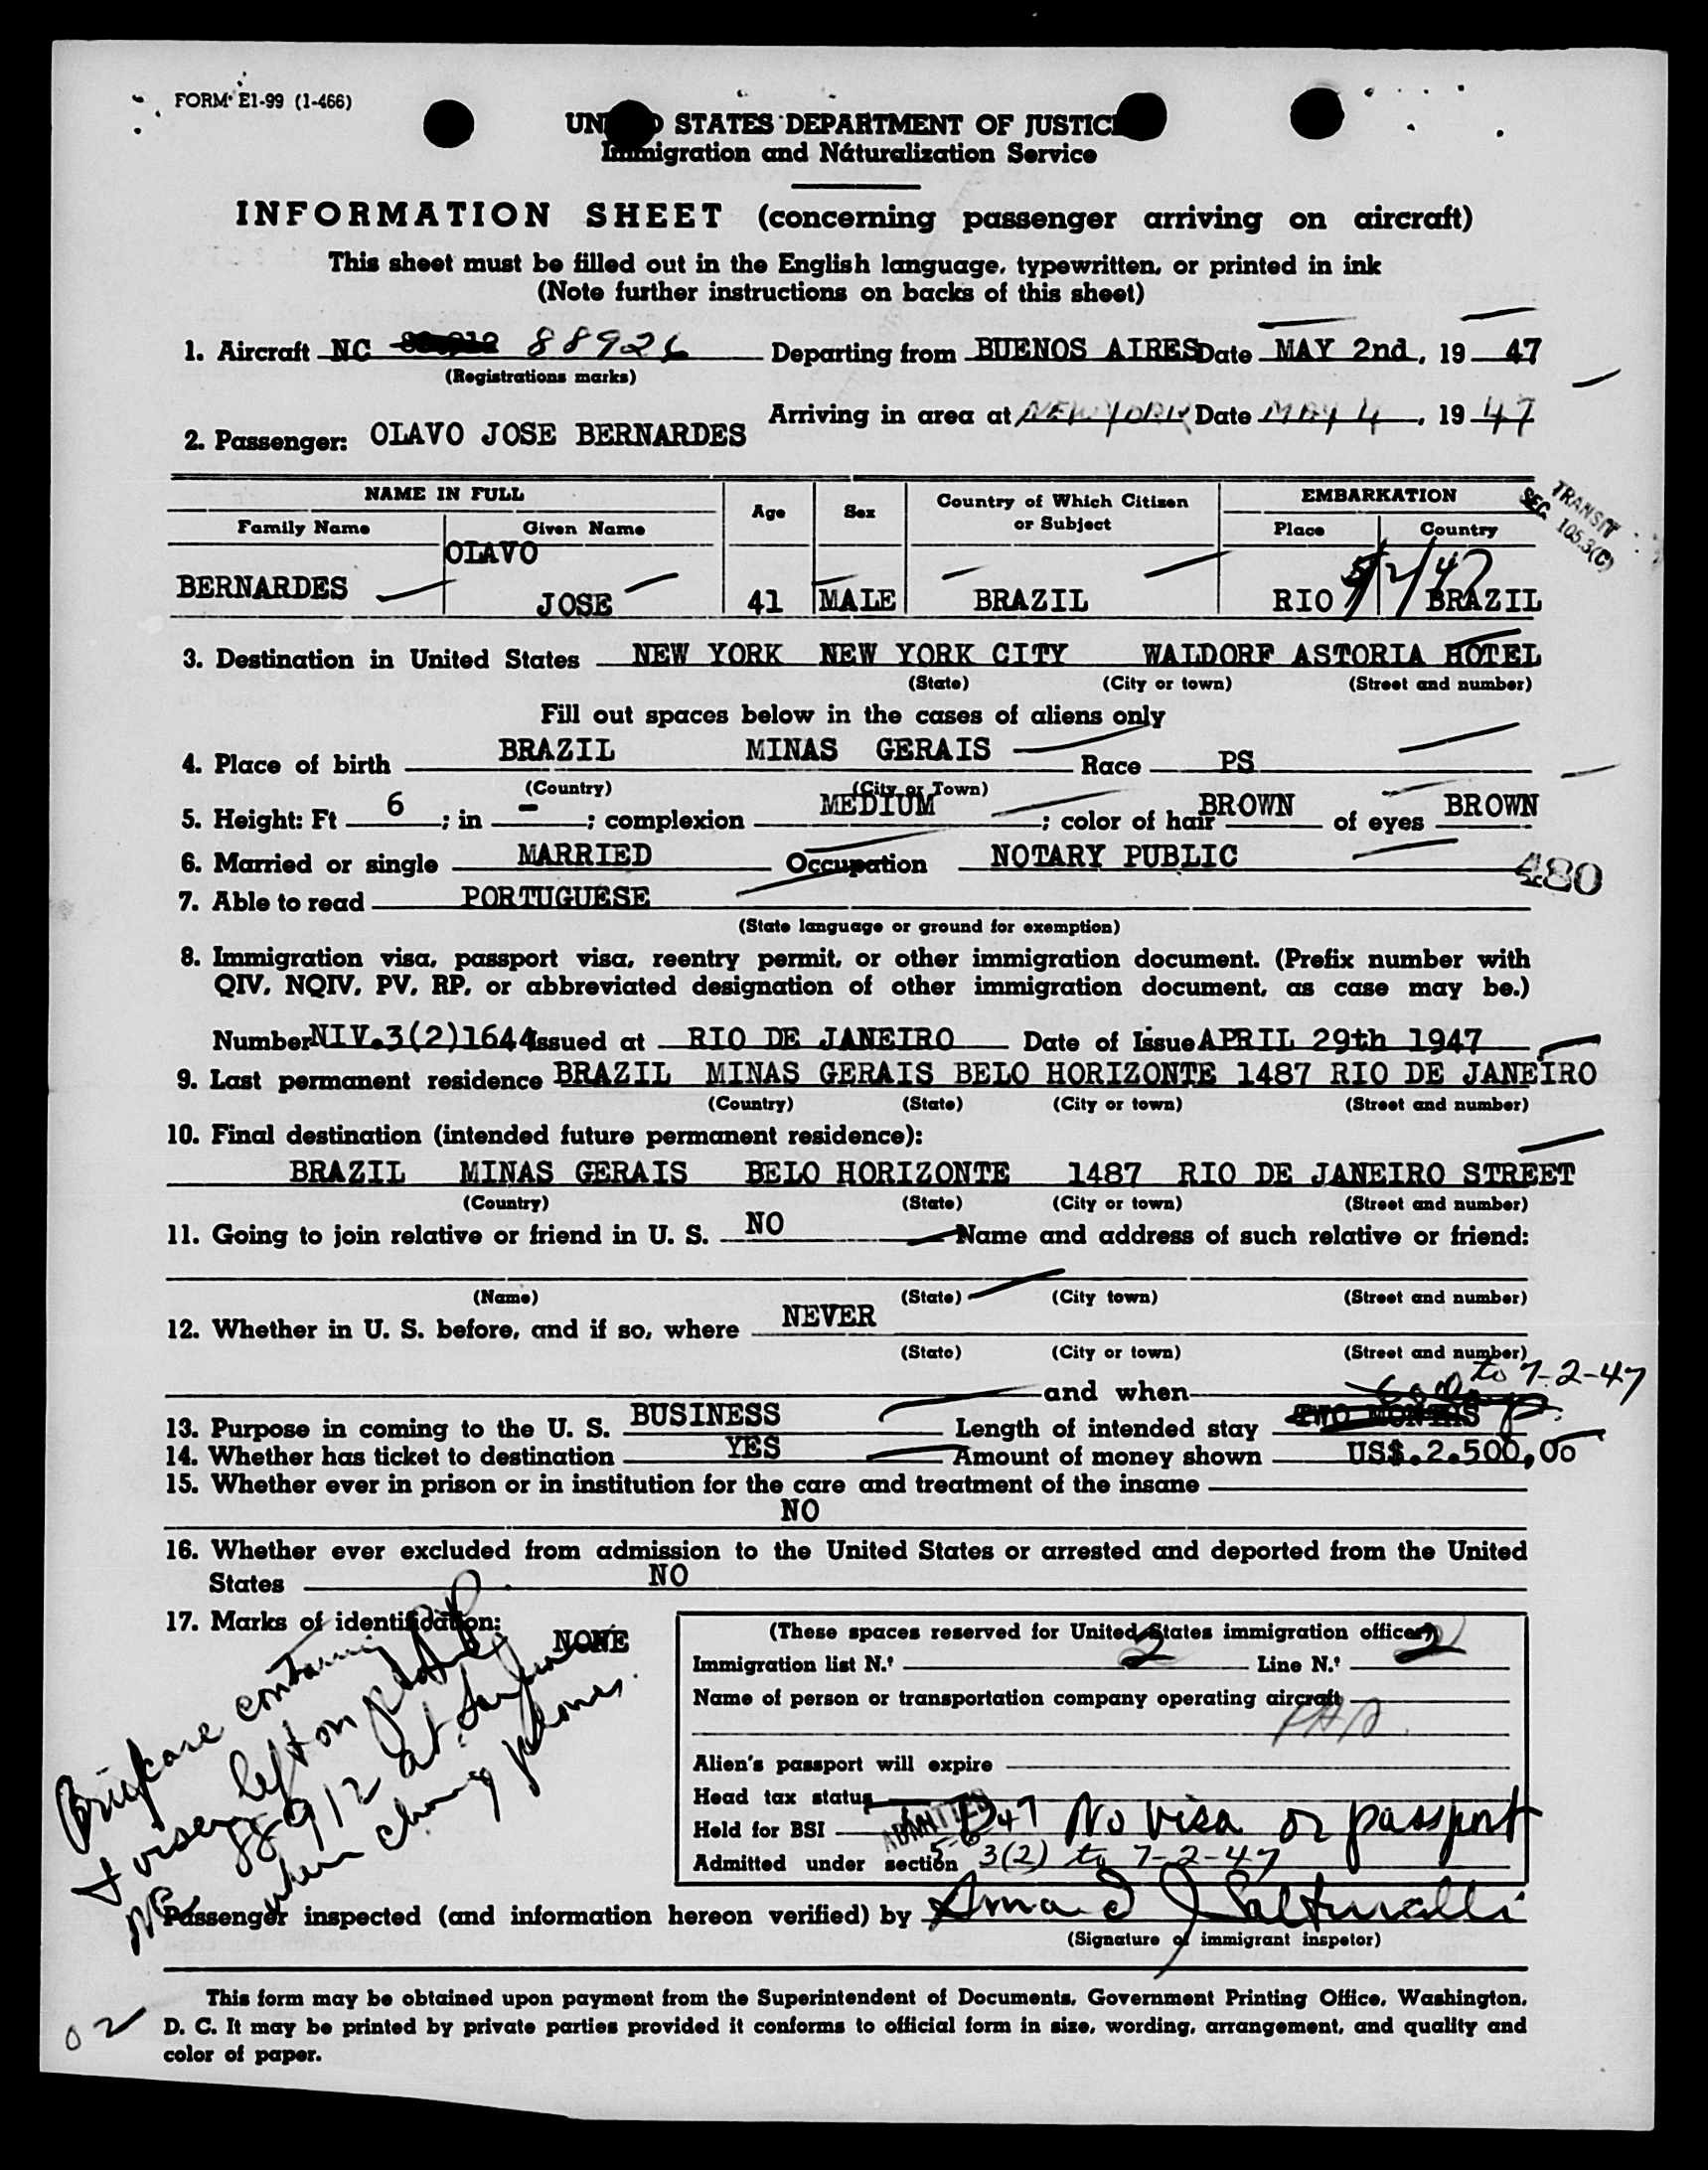 FORM E1-99 (1-466)
UN D STATES DEPARTMENT OF JUSTIC
Immigration and Naturalization Service
INFORMATION SHEET (concerning passenger arriving on aircraft)
This sheet must be filled out in the English language, typewritten, or printed in ink
(Note further instructions on backs of this sheet)
1. Aircraft NC 88926 Departing from BUENOS AIRES Date MAY 2nd, 19 47
(Registrations marks)
Arriving in area at NEW YORK Date MAY 4, 19 47
2. Passenger: OLAVO JOSE BERNARDES
NAME IN FULL Age Sex Country of Which Citizen or Subject EMBARKATION
Family Name Given Name Place Country
TRANSIT
SEC. 105.3(C)
BERNARDES OLAVO JOSE 41 MALE BRAZIL RIO 5/2/47 BRAZIL
3. Destination in United States NEW YORK NEW YORK CITY WALDORF ASTORIA HOTEL
(State) (City or town) (Street and number)
Fill out spaces below in the cases of aliens only
4. Place of birth BRAZIL MINAS GERAIS Race PS
(Country) (City or Town)
5. Height: Ft 6 ; in - ; complexion MEDIUM ; color of hair BROWN of eyes BROWN
6. Married or single MARRIED Occupation NOTARY PUBLIC
480
7. Able to read PORTUGUESE
(State language or ground for exemption)
8. Immigration visa, passport visa, reentry permit, or other immigration document. (Prefix number with
QIV, NQIV, PV, RP, or abbreviated designation of other immigration document, as case may be.)
Number NIV.3(2)1644 Issued at RIO DE JANEIRO Date of Issue APRIL 29th 1947
9. Last permanent residence BRAZIL MINAS GERAIS BELO HORIZONTE 1487 RIO DE JANEIRO
(Country) (State) (City or town) (Street and number)
10. Final destination (intended future permanent residence):
BRAZIL MINAS GERAIS BELO HORIZONTE 1487 RIO DE JANEIRO STREET
(Country) (State) (City or town) (Street and number)
11. Going to join relative or friend in U. S. NO Name and address of such relative or friend:
(Name) (State) (City town) (Street and number)
12. Whether in U. S. before, and if so, where NEVER
(State) (City or town) (Street and number)
and when
to 7-2-47
13. Purpose in coming to the U. S. BUSINESS Length of intended stay TWO MONTHS
14. Whether has ticket to destination YES Amount of money shown US$.2.500,00
15. Whether ever in prison or in institution for the care and treatment of the insane
NO
16. Whether ever excluded from admission to the United States or arrested and deported from the United
States NO
17. Marks of identification: NONE
Briefcase containing PP
& visa left on plane
NC 88912 at
when changing planes.
(These spaces reserved for United States immigration officer)
Immigration list N.º 2 Line N.º 2
Name of person or transportation company operating aircraft
PAA
Alien's passport will expire
Head tax status
Held for BSI 47 No visa or passport
ADMITTED
Admitted under section 3(2) to 7-2-47
Passenger inspected (and information hereon verified) by
(Signature of immigrant inspetor)
02
This form may be obtained upon payment from the Superintendent of Documents, Government Printing Office, Washington,
D. C. It may be printed by private parties provided it conforms to official form in size, wording, arrangement, and quality and
color of paper.